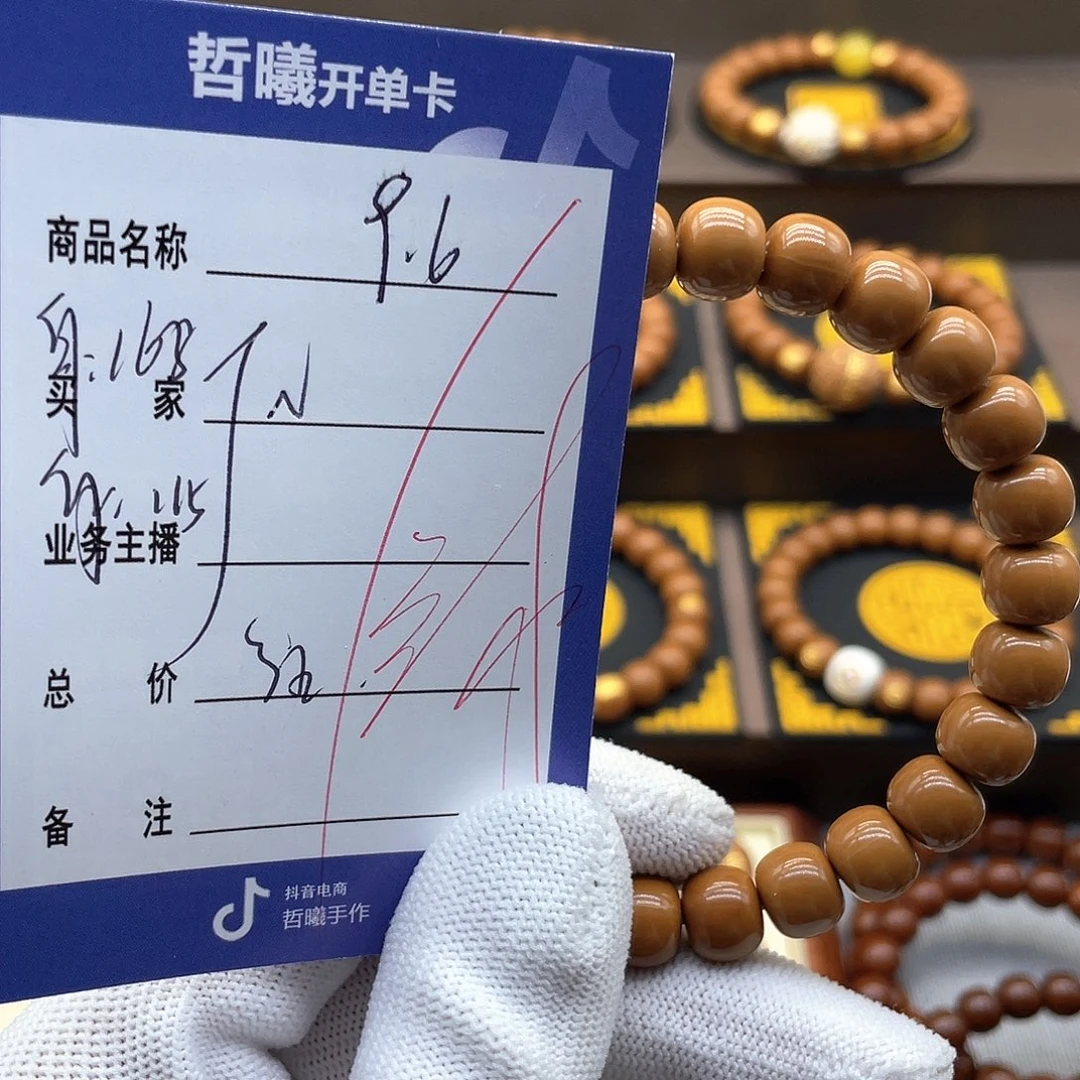 哲曦开单卡
商品名称 9.6
身:168
买家 J.N
体:115
业务主播
总价
备注
抖音电商
哲曦手作